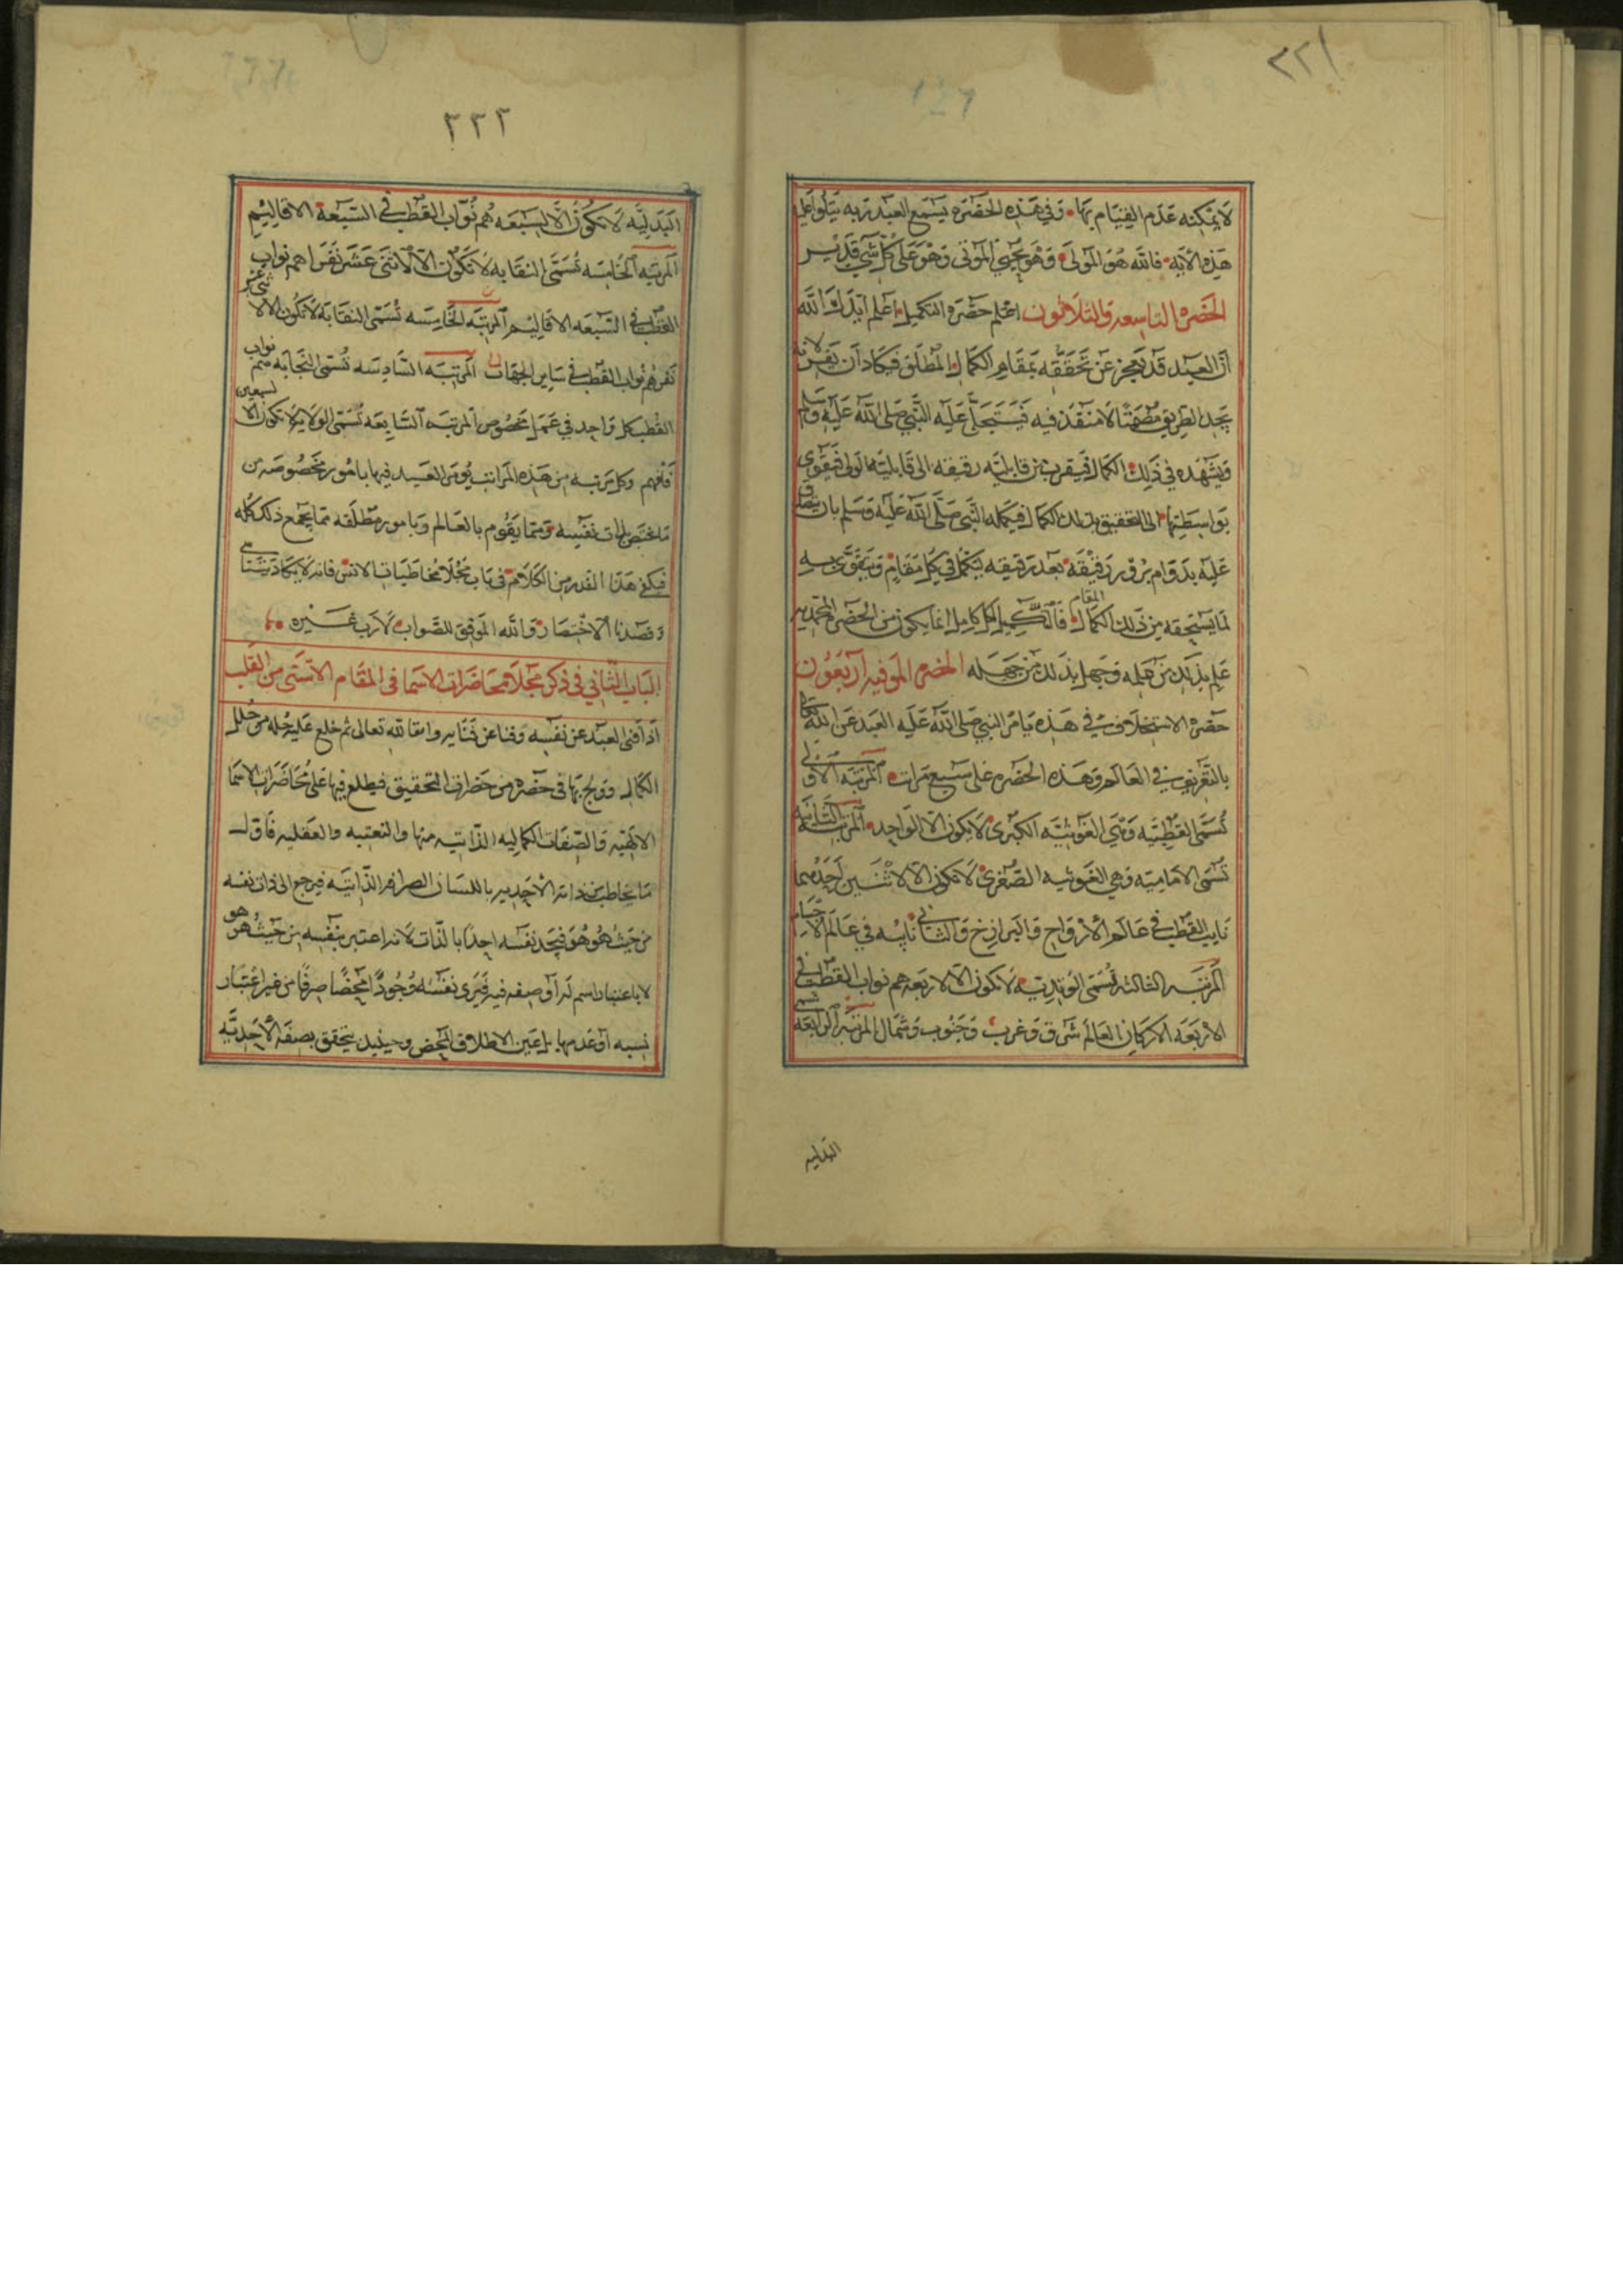 ٢٢١
لا يمكنه عدم القيام بها وفي هذه الحضره يسمع العبد ربه يتلوا عليه
هذه الايه فالله هو المولى وهو يحيي الموتى وهو على كل شي قدير
الحضره التاسعه والثلاثون اعلم حضره التكميل اعلم ايدك الله
ان العبد قد يعجز عن تحققه بمقام الكمال المطلق فيكاد ان لانه
يجد الطريق لا منفذ فيه عليه النبي صلى الله عليه وسلم
ويشهده في ذلك الكمال من قابليته رقيقه الى قابليته فيقوى
بواسطتها الى التحقيق بذلك الكمال فيكمله النبي صلى الله عليه وسلم بان
عليه بدوام رقيقه بعد رقيقه ليكمل في كل مقام ويتقوى به
لما يستحقه من ذلك الكمال المقام فالتكميل لكل كامل انما يكون من الحضره المحمديه
علم بذلك من علمه وجهل بذلك من جهله الحضره الموفيه اربعون
حضره الاستخلاف في هذه يامر النبي صلى الله عليه العبد عن الله تعالى
بالتعريف في العالم وهذه الحضره على سبع مرات المرتبه الاولى
تسمى القطبيه وهي الغوثيه الكبرى لا يكون الا لواحد المرتبه الثانيه
تسمى الاماميه وهي الغوثيه الصغرى لا تكون الا لاثنين احدهما
نايب القطب في عالم الارواح والبرازخ والثاني نايبه في عالم الاجسام
المرتبه الثالثه تسمى الوتديه لا تكون الا لاربعه هم نواب القطب في
الاربعه الاركان العالم شرق وغرب وجنوب وشمال المرتبه الرابعه تسمى
البدليه
٢٢٢
البدليه لا تكون الا لسبعه هم نواب القطب في السبعة الاقاليم
المرتبه الخامسه تسمى النقابه لا تكون الا لاثنى عشر نفرا هم نواب
القطب في السبعه الاقاليم المرتبه الخامسه تسمى النقابه لا تكون الا لا ثنى عشر
نفر هم نواب القطب في ساير الجهات المرتبه السادسه تسمى النجابه هم نواب
القطب كل واحد في عمل مخصوص المرتبه السابعه تسمى الولايه لا تكون الا لسبعين
فافهم وكل مرتبه من هذه المراتب يؤمر العبد فيها بامور مخصوصه من
ما يختص بذات نفسه ومما يقوم بالعالم وبامور مطلقه مما يجمع ذلك كله
فيكفي هذا القدر من الكلام في باب مجلا مخاطبات الانس فانه لا يكاد يتناهى
وقصدنا الاختصار والله الموفق للصواب لا رب غيره
الباب الثاني في ذكر مجلا محاضرات الاسما في المقام الاسنى من القلب
اذا فنى العبد عن نفسه وفنا عن فنايه وابقا لله تعالى ثم خلع عليه حله من حلل
الكمال وولج بها في حضره من حضرات التحقيق فيطلع فيها على محاضرات الاسما
الالهيه والصفات الكماليه الذاتيه منها والنعتيه والفعليه فاول
ما يخاطب من ذاته الاحديه باللسان الصرافه الذاتيه فيرجع الى ذات نفسه
من حيث هو هو فيجد نفسه احدا بالذات لانه اعتبر نفسه من حيث هو هو
لا باعتبار اسم له او صفه فيه فيرى نفسه وجودا محضا صرفا من غير اعتبار
نسبه او عدمها بل عين الاطلاق المحض وحينيذ يتحقق بصفه الاحديه